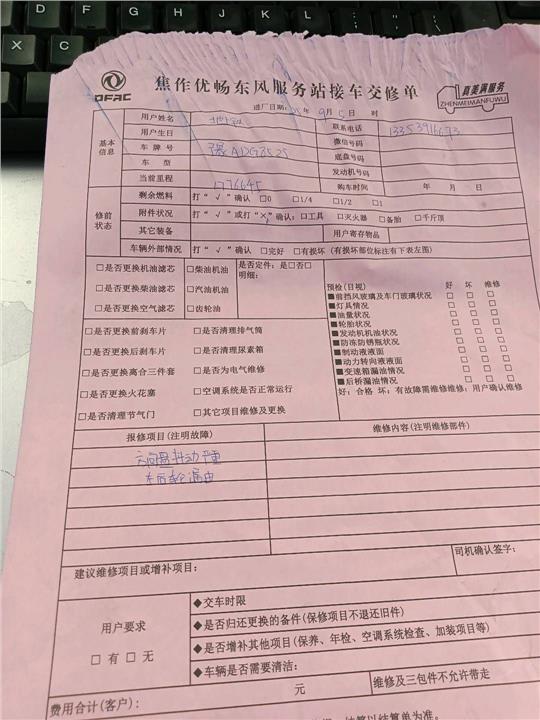 D F G H J K L
X C
DFAC
焦作优畅东风服务站接车交修单
真美满服务
ZHENMEIMANFUWU
进厂日期: 年 9月5日 时
基本信息
用户姓名
联系电话
用户生日
微信号码
车 牌 号
底盘号码
车 型
发动机号码
当前里程 1776645
购车时间 年 月 日
修前状态
剩余燃料 打“√”确认 □0 □1/4 □1/2 □1
附件状况 打“√”或打“×”确认:□工具 □灭火器 □备胎 □千斤顶
其它装备
用户寄存物品
车辆外部情况 打“√”确认 □完好 □有损坏(有损坏部位标注有下表左图)
□是否更换机油滤芯 □柴油机油 是否定件:是□否□
明细:
□是否更换柴油滤芯 □汽油机油
□是否更换空气滤芯 □齿轮油
预检(目视) 好 坏 维修
■前挡风玻璃及车门玻璃状况 □ □ □
■灯具情况 □ □ □
■油量状况 □ □ □
■轮胎状况 □ □ □
■发动机机油状况 □ □ □
■防冻防锈瓶状况 □ □ □
■制动液液面 □ □ □
■动力转向液液面 □ □ □
■变速箱漏油情况 □ □ □
■后桥漏油情况 □ □ □
好:合格 坏:有故障需维修维修:用户确认维修
□是否更换前刹车片 □是否清理排气筒
□是否更换后刹车片 □是否清理尿素箱
□是否更换离合三件套 □是否为电气维修
□是否更换火花塞 □空调系统是否正常运行
□是否清理节气门 □其它项目维修及更换
报修项目(注明故障) 维修内容(注明维修部件)
方向盘抖动严重
左后轮漏油
建议维修项目或增补项目:
司机确认签字:
用户要求
□ 有 □ 无
◆交车时限
◆是否归还更换的备件(保修项目不退还旧件)
◆是否增补其他项目(保养、年检、空调系统检查、加装项目等)
◆车辆是否需要清洁:
费用合计(客户): 元 维修及三包件不允许带走
结算以结算单为准。